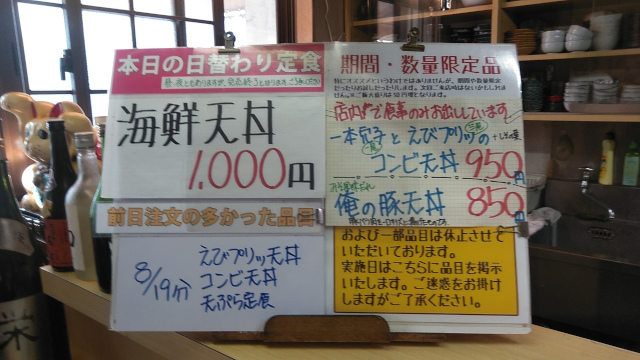 本日の日替わり定食
海鮮天丼
1,000円
前日注文の多かった品
8/19分
えびプリッ天丼
コンビ天丼
天ぷら定食
期間・数量限定品
店内で食事のみお出ししています
一本穴子とえびプリッの
コンビ天丼 950円
俺の豚天丼 850円
および一部品目は休止させて
いただいております。
実施日はこちらに品目を掲示
いたします。ご迷惑をお掛け
しますがご了承ください。